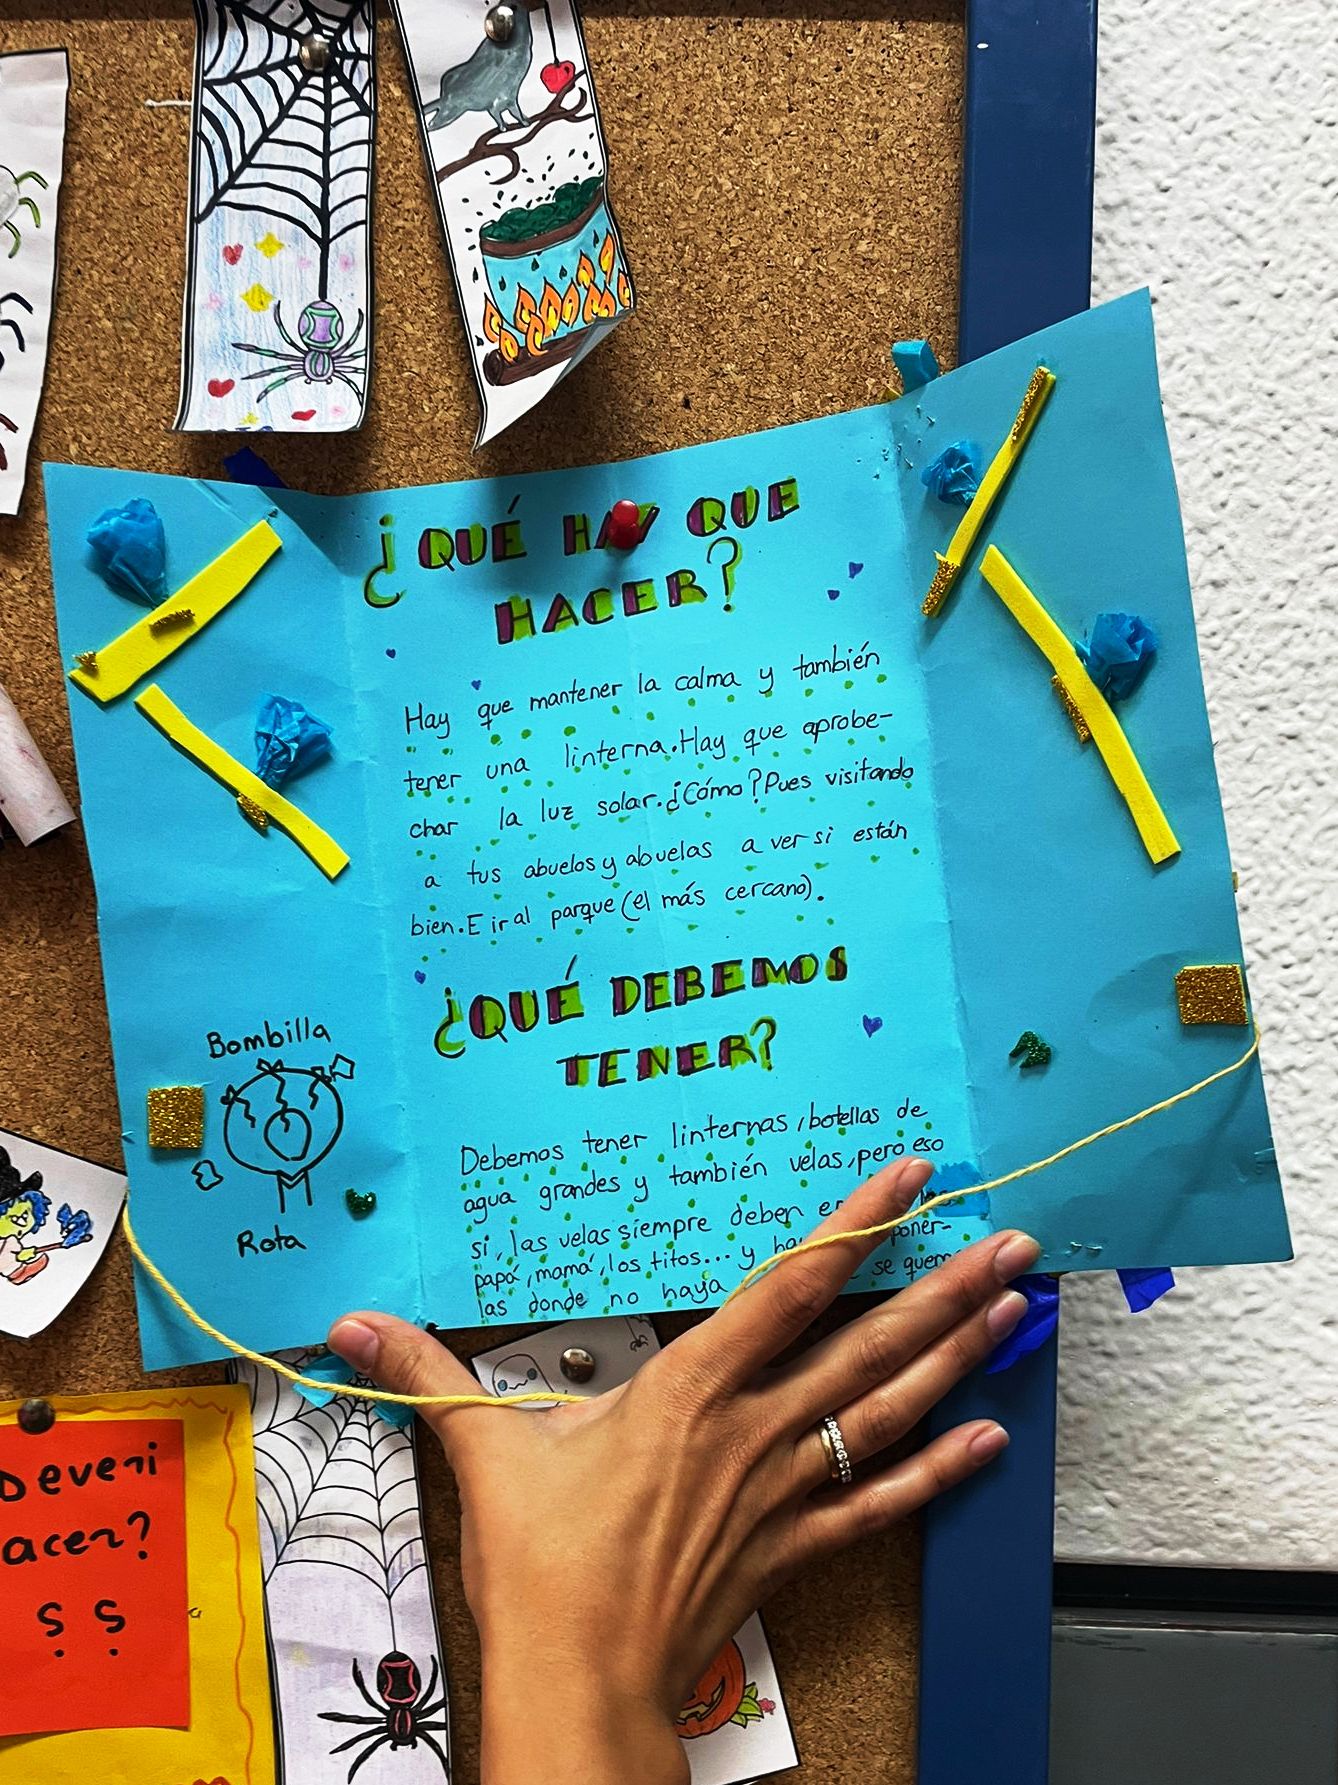 ¿QUÉ HAY QUE
HACER?
Hay que mantener la calma y también
tener una linterna. Hay que aprobe-
char la luz solar. ¿Cómo? Pues visitando
a tus abuelos y abuelas a ver si están
bien. E ir al parque (el más cercano).
¿QUÉ DEBEMOS
TENER?
Debemos tener linternas, botellas de
agua grandes y también velas, pero eso
si, las velas siempre deben
papá, mamá, los titos... y poner-
las donde no haya se quem
Bombilla
Rota
Deveni
acer?